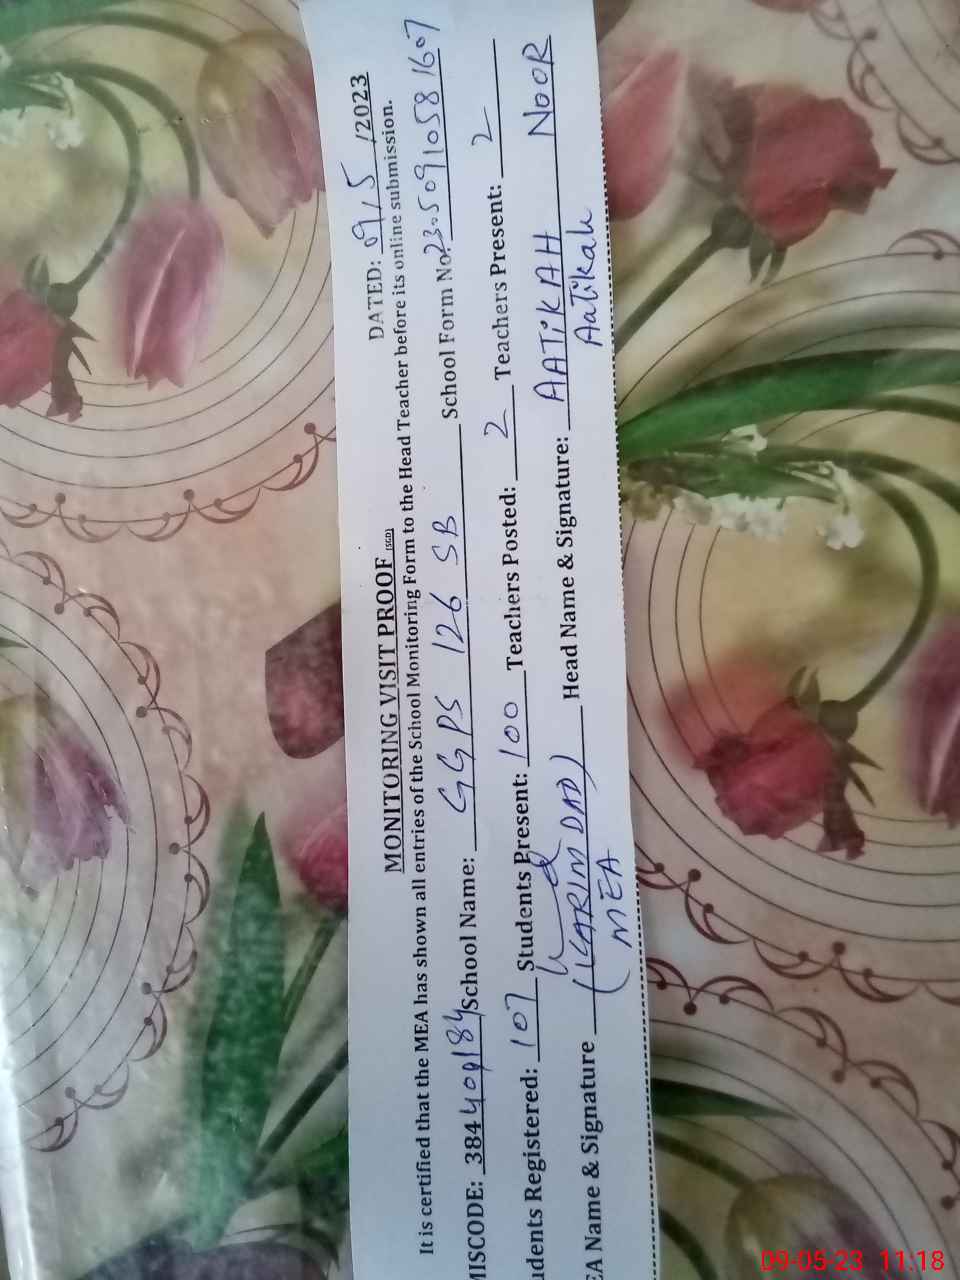 MONITORING VISIT PROOF (SGD) DATED: 09/5/2023
It is certified that the MEA has shown all entries of the School Monitoring Form to the Head Teacher before its online submission.
MISCODE: 38440184 School Name: GGPS 126 SB School Form No. 2305091058 1607
udents Registered: 107 Students Present: 100 Teachers Posted: 2 Teachers Present: 2
EA Name & Signature (KARIM DAD) Head Name & Signature: AATiKAH NOOR
MEA Aatikah
09-05-23 11:18